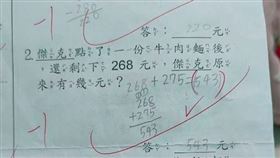 答：220元
-1
2.傑克點了一份牛肉麵後
，還剩下268元，傑克原
來有幾元？ 268+275=(543)
268
+275
543
-1
答：543元